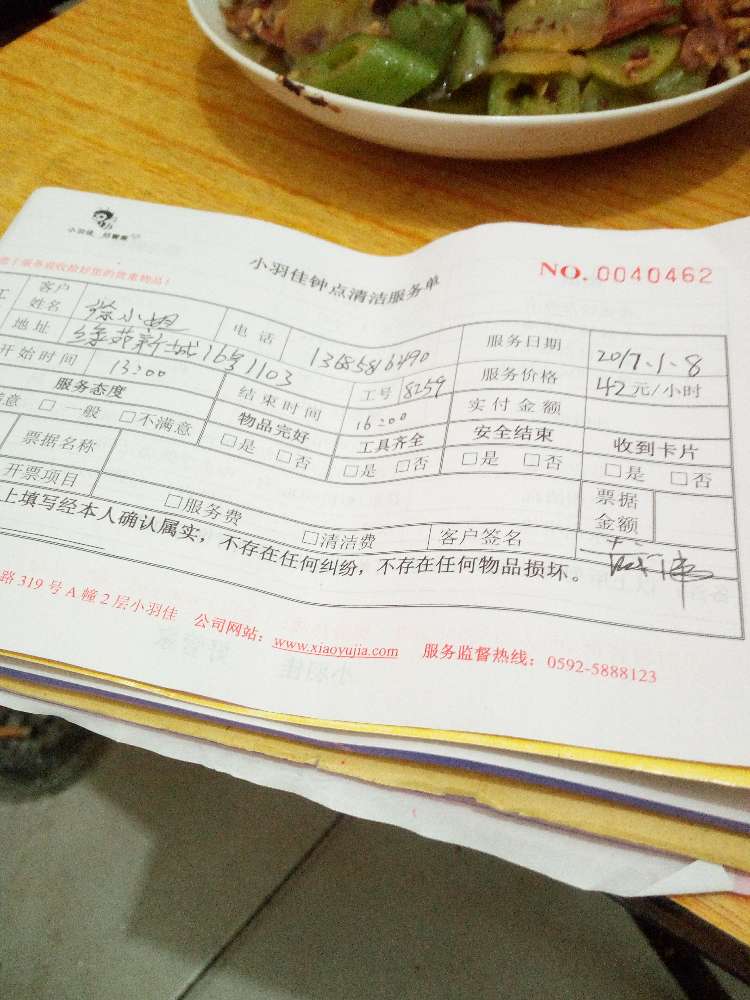 小羽佳 好管家
小羽佳钟点清洁服务单
NO. 0040462
！服务前收拾好您的贵重物品！
客户姓名 徐小姐 电话 13685816490 服务日期 2017.1.8
地址 绿苑新城16号1103 工号 8259 服务价格 42元/小时
开始时间 13:00 结束时间 16:00 实付金额
服务态度 物品完好 工具齐全 安全结束 收到卡片
意 □一般 □不满意 □是 □否 □是 □否 □是 □否 □是 □否
票据名称 票据金额
开票项目 □服务费 □清洁费 客户签名
上填写经本人确认属实，不存在任何纠纷，不存在任何物品损坏。
路319号A幢2层小羽佳 公司网站：www.xiaoyujia.com 服务监督热线：0592-5888123